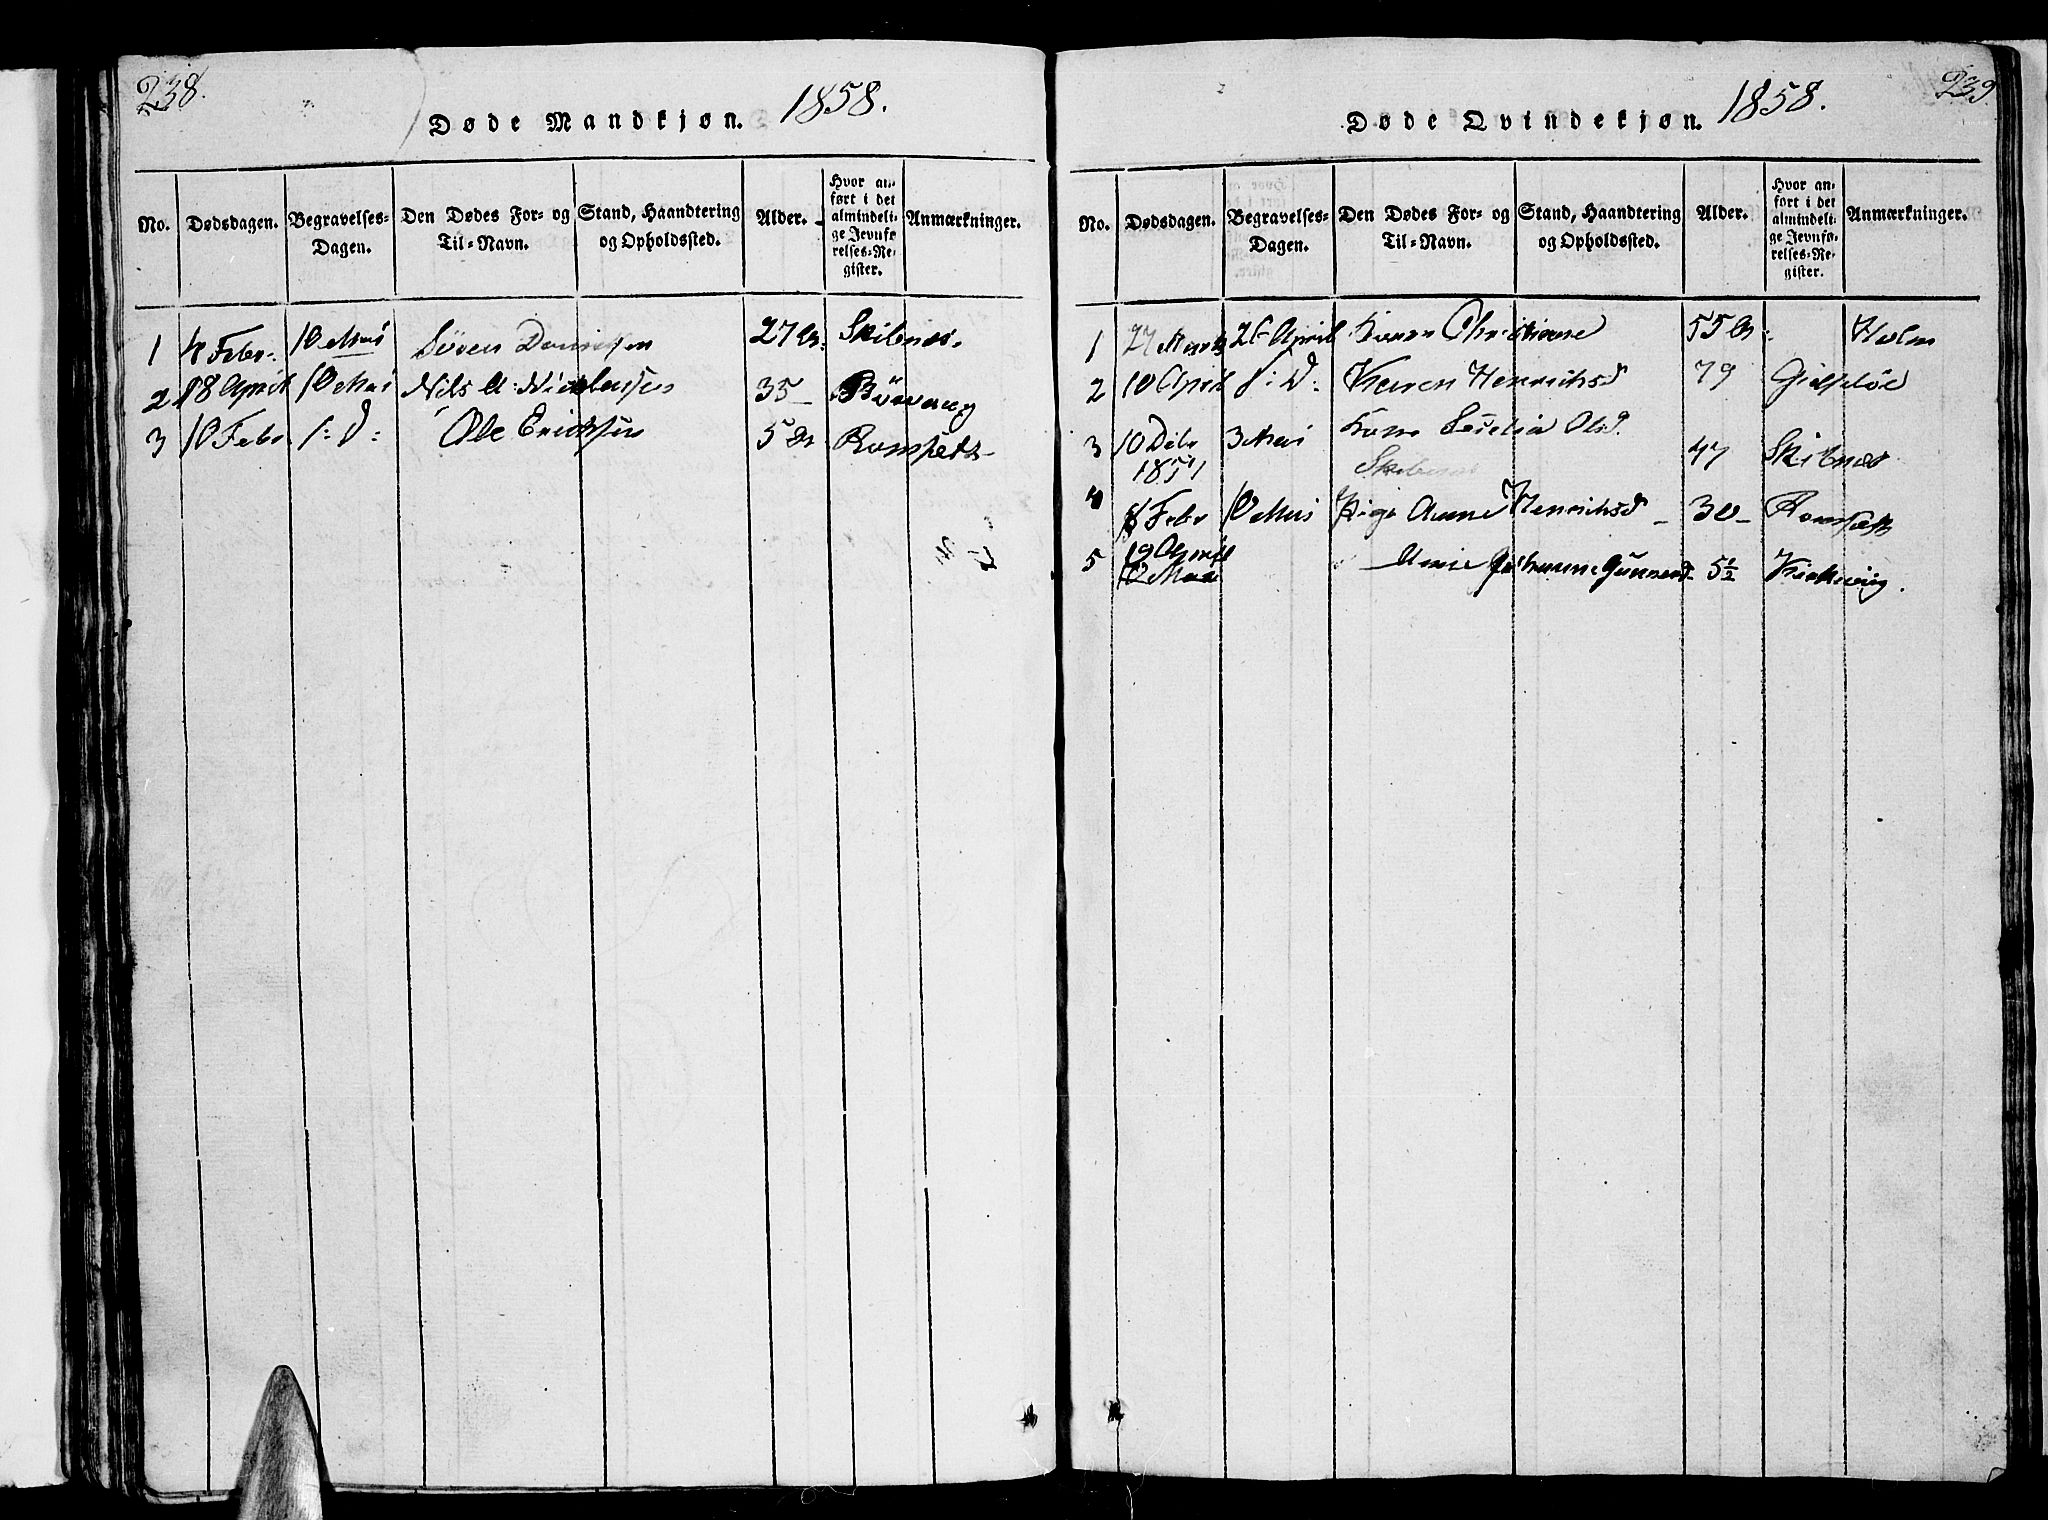 238.
Døde Mandkjøn. 1858.
No. Dødsdagen. Begravelses-Dagen. Den Dødes For- og Til-Navn. Stand, Haandtering og Opholdssted. Alder. Hvor anført i det almindelige Jevnførelses-Register. Anmærkninger.
1 4 Febr. 10 Mai Sören Danielsen 27 Skibnæs.
2 18 April 10 Mai Nils A: Nicklassen 35 -
3 10 Febr /: D: Ole Ericksen 5 Romsæth
239
Døde Qvindekjøn. 1858.
No. Dødsdagen. Begravelses-Dagen. Den Dødes For- og Til-Navn. Stand, Haandtering og Opholdssted. Alder. Hvor anført i det almindelige Jevnførelses-Register. Anmærkninger.
1 27 Marts 26 April Christiane 55 Holm
2 10 April /: D: Karen Henrichsd 79
3 10 Debr 3 Mai Kone Ceselia Olsd.
1857 Skibnæs 47 Skibnæs
4 8 Febr 10 Mai Pige Anne Henrichsd - 30 - Romsæth
5 19 April
10 Mai Johanne Gunnersd 5½